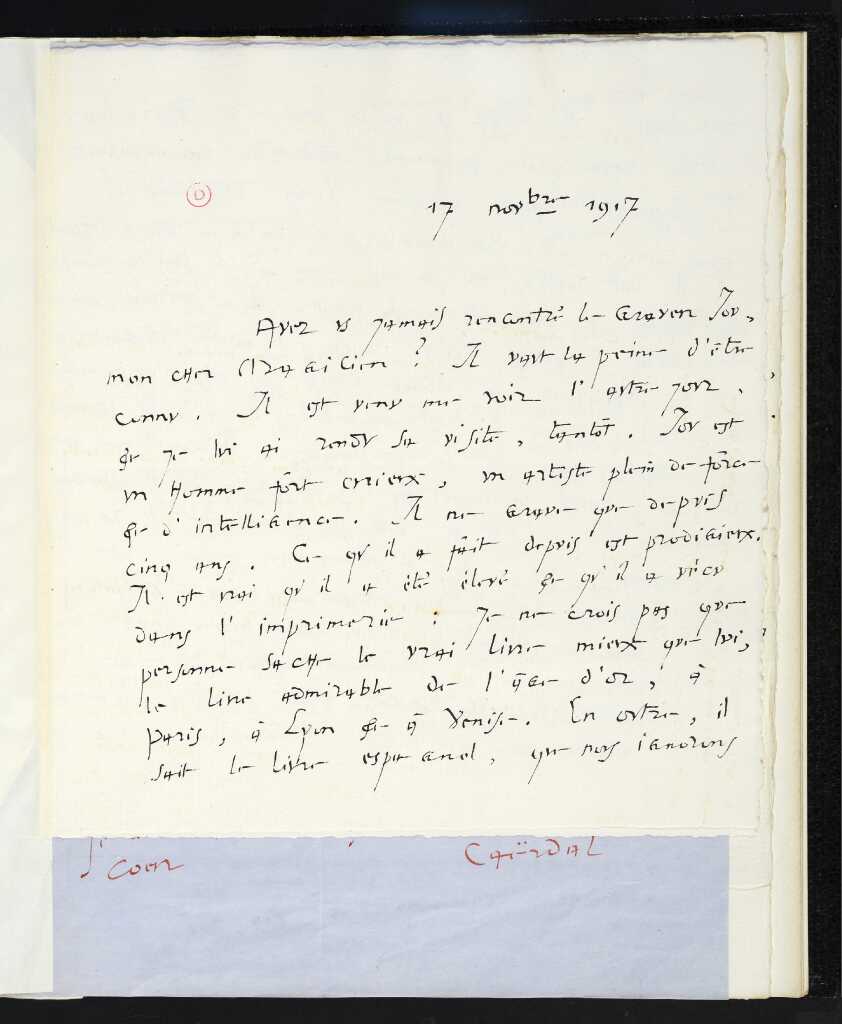 D
17 novbre 1917
Avez vs jamais rencontré le graveur Jou,
mon cher Magicien ? Il vaut la peine d'être
connu. Il est venu me voir l'autre jour,
et je lui ai rendu sa visite, tantôt. Jou est
un homme fort curieux, un artiste plein de force
et d'intelligence. Il ne grave que depuis
cinq ans. Ce qu'il a fait depuis est prodigieux.
Il est vrai qu'il a été élevé et qu'il a vécu
dans l'imprimerie : je ne crois pas que
personne sache le vrai livre mieux que lui,
le livre admirable de l'âge d'or, à
Paris, à Lyon et à Venise. En outre, il
sait le livre espagnol, que nous ignorons
Coer Caërdal